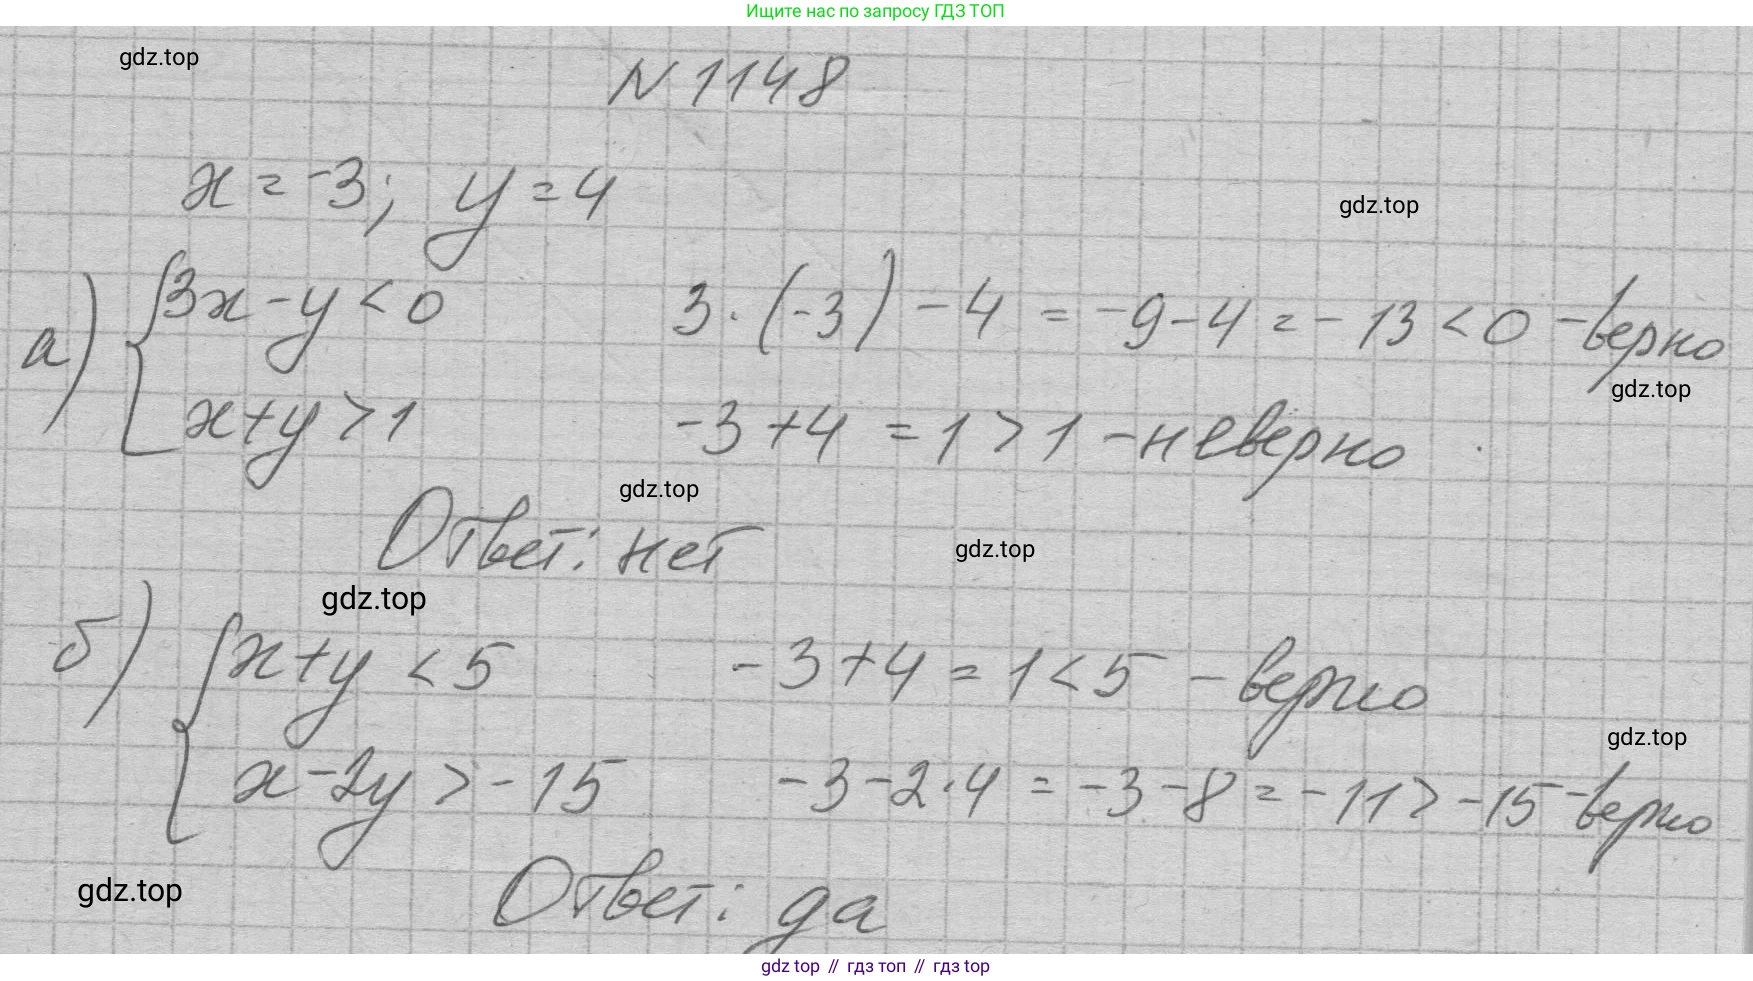 Ищите нас по запросу ГДЗ ТОП
gdz.top
N 1148
x = -3; y = 4
gdz.top
а) { 3x - y < 0     3 · (-3) - 4 = -9 - 4 = -13 < 0 - верно
gdz.top
x + y > 1     -3 + 4 = 1 > 1 - неверно
gdz.top
Ответ: нет
gdz.top
gdz.top
б) { x + y < 5     -3 + 4 = 1 < 5 - верно
gdz.top
x - 2y > -15     -3 - 2 · 4 = -3 - 8 = -11 > -15 - верно
gdz.top
Ответ: да
gdz top // гдз топ // гдз top